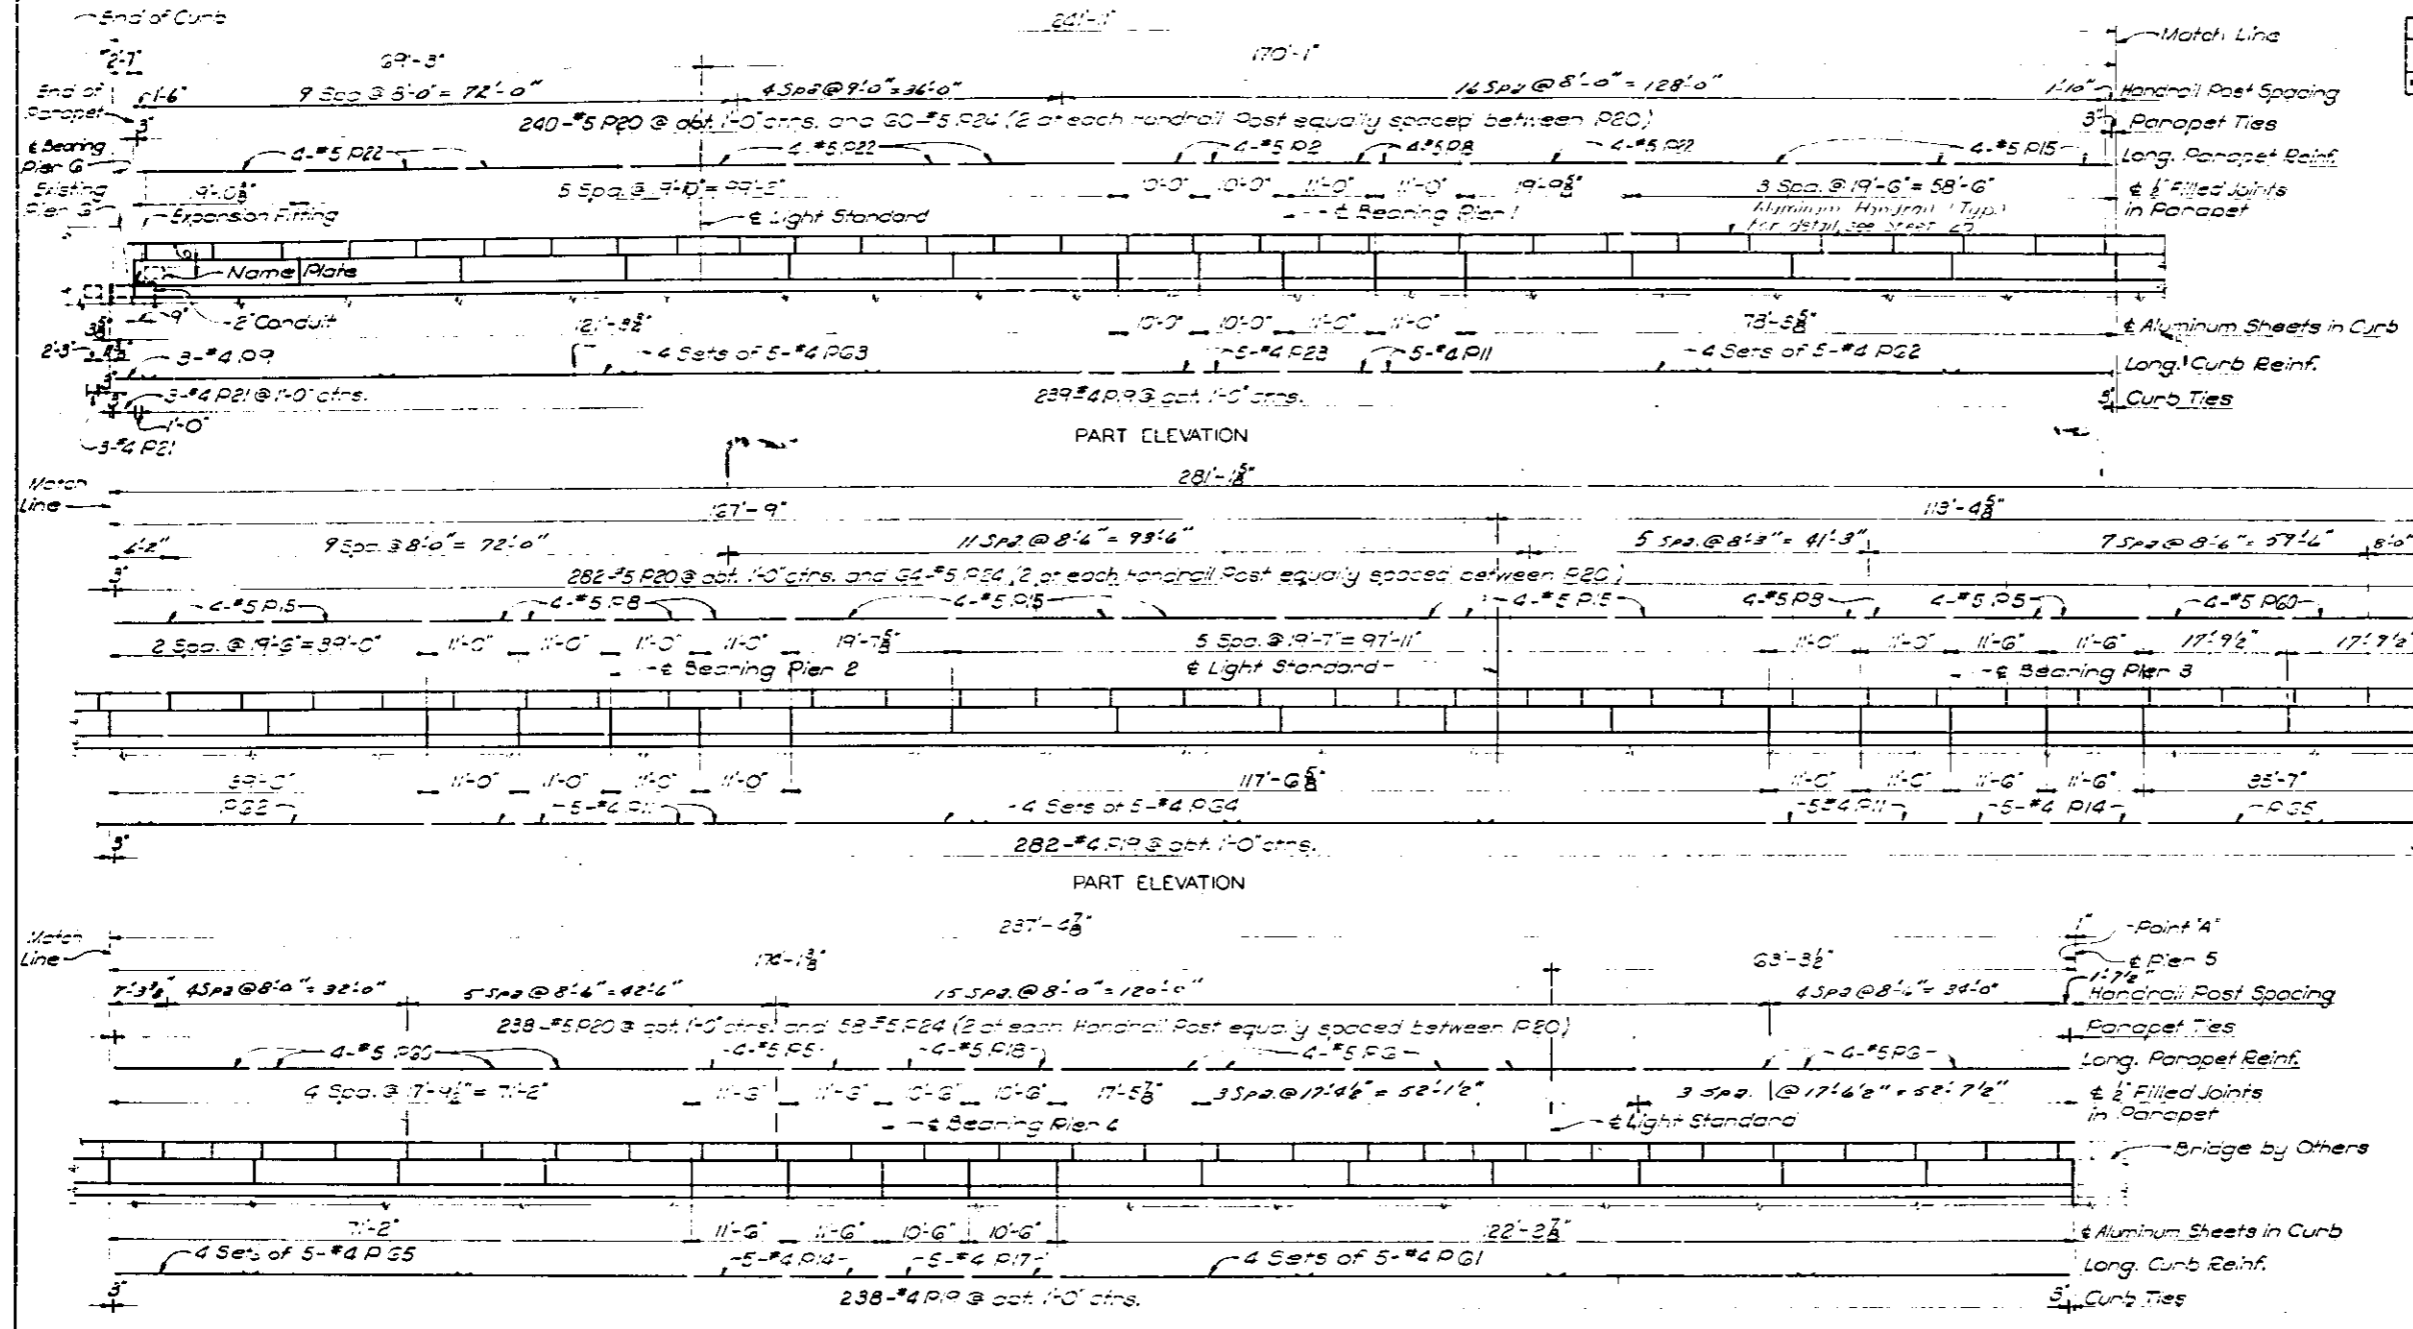 End of Curb
241'-11"
Match Line
2'-7"
69'-3"
170'-1"
End of Parapet
1'-6"
9 Spa @ 8'-0" = 72'-0"
4 Spa @ 9'-0" = 36'-0"
16 Spa @ 8'-0" = 128'-0"
1'-10"
Handrail Post Spacing
240-#5 P20 @ abt. 1'-0" ctrs. and 60-#5 P24 (2 at each Handrail Post equally spaced between P20)
3"
3"
Parapet Ties
℄ Bearing Pier 6
4-#5 P22
4-#5 P22
4-#5 P2
4-#5 P8
4-#5 P22
4-#5 P15
Long. Parapet Reinf.
Existing Pier 3
19'-0⅝"
5 Spa. @ 19'-10" = 99'-2"
10'-0"
10'-0"
11'-0"
11'-0"
19'-9⅝"
3 Spa. @ 19'-6" = 58'-6"
℄ ½" Filled Joints in Parapet
Expansion Fitting
℄ Light Standard
℄ Bearing Pier 1
Aluminum Handrail (Typ.)
For detail, see Sheet
Name Plate
9"
2" Conduit
121'-8⅝"
10'-0"
10'-0"
11'-0"
11'-0"
78'-3⅝"
℄ Aluminum Sheets in Curb
2'-3"
3-#4 P9
4 Sets of 5-#4 P63
5-#4 P23
5-#4 P11
4 Sets of 5-#4 P62
Long. Curb Reinf.
3"
3-#4 P21 @ 1'-0" ctrs.
239-#4 P19 @ abt. 1'-0" ctrs.
3"
Curb Ties
1'-0"
3-#4 P21
PART ELEVATION
Match Line
281'-1⅝"
167'-9"
113'-4⅝"
4'-2"
9 Spa. @ 8'-0" = 72'-0"
11 Spa. @ 8'-6" = 93'-6"
5 Spa. @ 8'-3" = 41'-3"
7 Spa @ 8'-6" = 59'-6"
8'-0"
3"
282-#5 P20 @ abt. 1'-0" ctrs. and 64-#5 P24 (2 at each Handrail Post equally spaced between P20)
4-#5 P15
4-#5 P8
4-#5 P15
4-#5 P15
4-#5 P8
4-#5 P5
4-#5 P60
2 Spa. @ 19'-6" = 39'-0"
11'-0"
11'-0"
11'-0"
11'-0"
19'-7⅝"
5 Spa. @ 19'-7" = 97'-11"
11'-0"
11'-0"
11'-6"
11'-6"
17'-9½"
17'-9½"
℄ Bearing Pier 2
℄ Light Standard
℄ Bearing Pier 3
39'-0"
11'-0"
11'-0"
11'-0"
11'-0"
117'-6⅝"
11'-0"
11'-0"
11'-6"
11'-6"
35'-7"
P62
5-#4 P11
4 Sets of 5-#4 P64
5-#4 P11
5-#4 P14
P65
3"
282-#4 P19 @ abt. 1'-0" ctrs.
PART ELEVATION
Match Line
237'-4⅞"
1"
Point "A"
174'-1⅜"
63'-3½"
℄ Pier 5
7'-3⅜"
4 Spa @ 8'-0" = 32'-0"
5 Spa @ 8'-6" = 42'-6"
15 Spa. @ 8'-0" = 120'-0"
4 Spa @ 8'-6" = 34'-0"
1'-7½"
Handrail Post Spacing
238-#5 P20 @ abt. 1'-0" ctrs. and 58-#5 P24 (2 at each Handrail Post equally spaced between P20)
Parapet Ties
4-#5 P60
4-#5 P5
4-#5 P18
4-#5 P6
4-#5 P6
Long. Parapet Reinf.
4 Spa. @ 17'-9½" = 71'-2"
11'-6"
11'-6"
10'-6"
10'-6"
17'-5⅞"
3 Spa. @ 17'-4½" = 52'-1½"
3 Spa. @ 17'-6½" = 52'-7½"
℄ ½" Filled Joints in Parapet
℄ Bearing Pier 4
℄ Light Standard
Bridge by Others
71'-2"
11'-6"
11'-6"
10'-6"
10'-6"
122'-2⅞"
℄ Aluminum Sheets in Curb
4 Sets of 5-#4 P65
5-#4 P14
5-#4 P17
4 Sets of 5-#4 P61
Long. Curb Reinf.
3"
238-#4 P19 @ abt. 1'-0" ctrs.
3"
Curb Ties